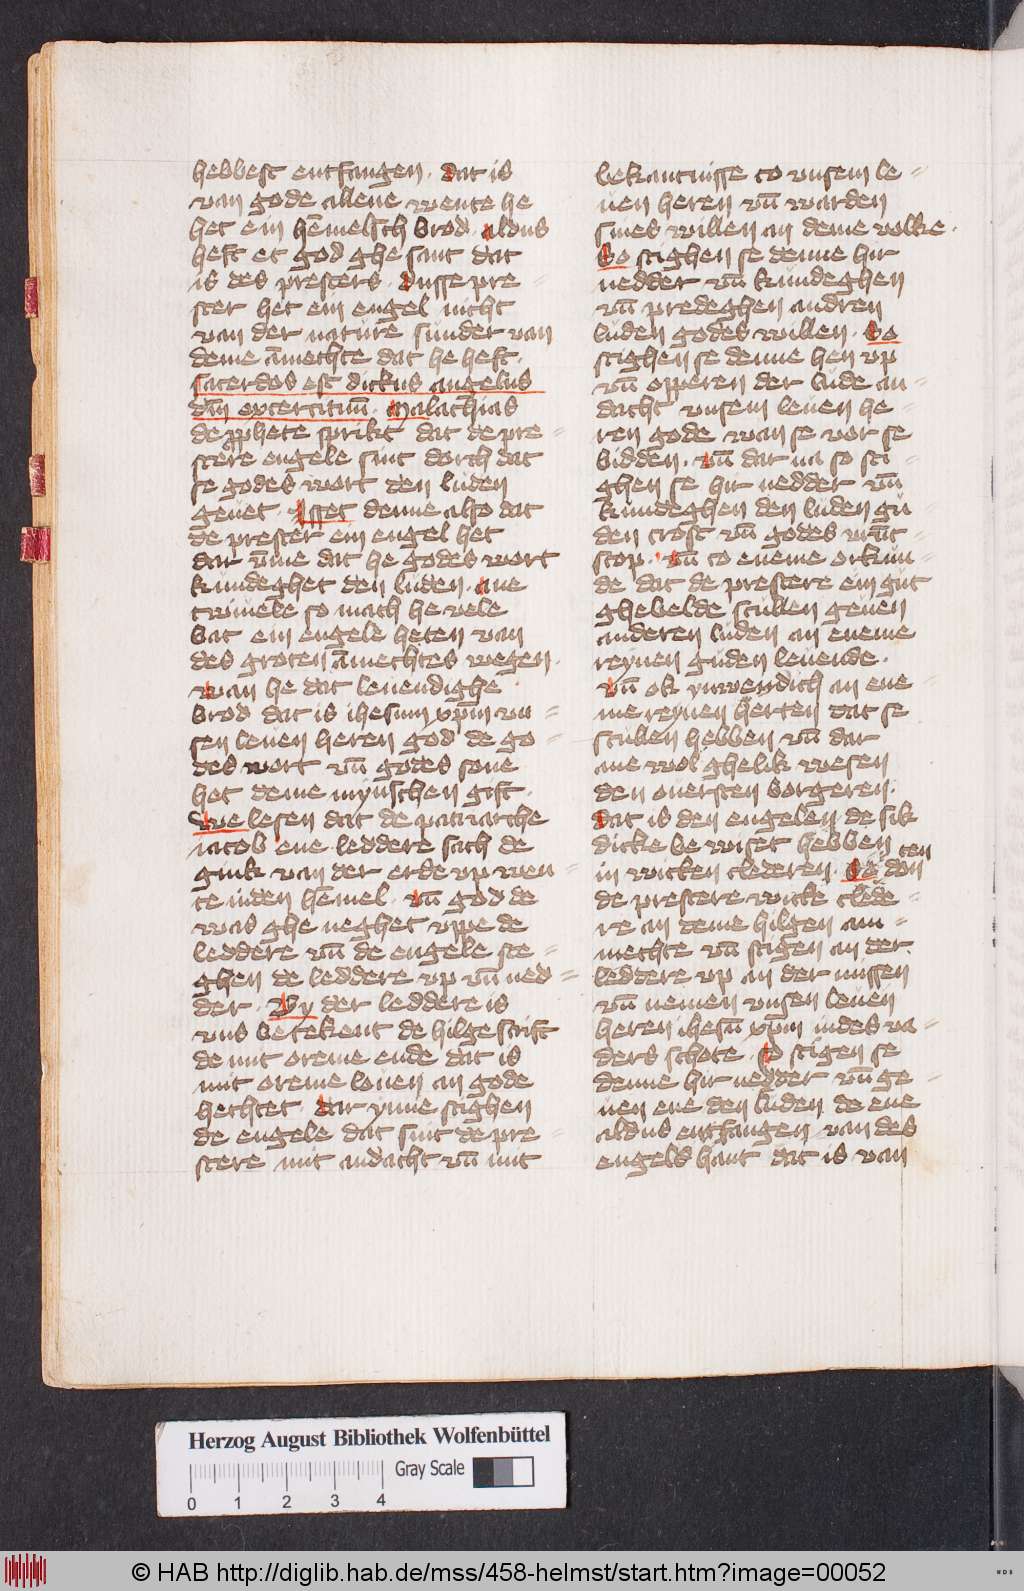 hebbest entfangen · dat is
van gode allene wente he
het ein hēmelsch brod · aldus
heft et god ghe sant dat
is des presters · dusse pre=
ster het ein engel nicht
van der nature sunder van
deme āmechte dat he heft ·
sacerdos est dictus angelus
dn̄i exercituū · Malachias
de pphete sprikt dat de pre=
stere engele sint dorch dat
se godes wort den luden
geuet · Isset denne also dat
de prester ein engel het
dar v̄me dat he godes wort
kundeghet den luden · ane
twiuele so mach he vele
bat ein engele heten van
des groten āmechtes wegen ·
wan he dat leuendighe
brod dat is ihesum xp̄m vn=
sen leuen heren god de go=
des wort vn̄ godes sone
het deme mynschen gift ·
We lesen dat de patriarche
iacob ene leddere sach de
gink van der erde vp wen=
te inden hēmel · vn̄ god de
was ghe neghet vppe de
leddere vn̄ de engele ste=
ghen de leddere vp vn̄ ned=
der · By der leddere is
vns betekent de hilge scrift
de mit oreme ende dat is
mit oreme louen an gode
hechtet · dar ynne stighen
de engele dat sint de pre=
stere mit andacht vn̄ mit
bekantnisse to vnsem le=
uen heren vn̄ warden
sines willen an deme volke ·
So stighen se denne hir
nedder vn̄ kundeghen
vn̄ predeghen andren
luden godes willen · So
stighen se denne hen vp
vn̄ opperen der lude an=
dacht vnsem leuen he=
ren gode wan se vor se
bidden · vn̄ dar na so sti=
ghen se hir nedder vn̄
kundeghen den luden gu=
den trost vn̄ godes vrūt=
scop · vn̄ to eneme orkun=
de dat de prestere ein gut
ghebelde scullen geuen
anderen luden an eneme
reynen guden leuende ·
vn̄ ok ynwendich an ene=
me reynen herten dat se
scullen hebben vn̄ dar
ane wol ghelik wesen
den ouersten borgeren ·
dat is den engelen de sik
dicke be wiset hebben
in witten clederen · So don ten
de prestere witte clede=
re an deme hilgen am=
mechte vn̄ stigen an der
leddere vp an der missen
vn̄ nemen vnsen leuen
heren ihesū xp̄m in des va=
ders schote · so stigen se
denne hir nedder vn̄ ge=
uen ene den luden de ene
aldus entfangen van des
engels hant dat is van
Herzog August Bibliothek Wolfenbüttel
Gray Scale
0 1 2 3 4
© HAB http://diglib.hab.de/mss/458-helmst/start.htm?image=00052